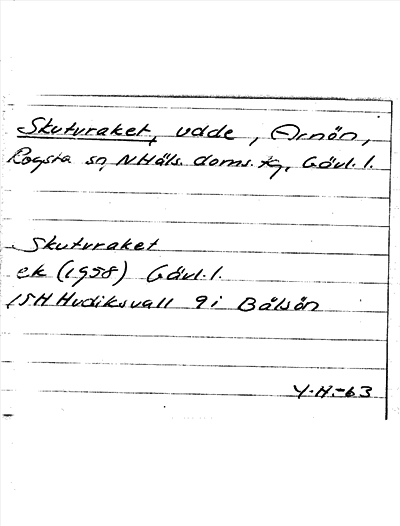 Skuturaket, udde, Arnön,
Rogsta sn, N Häls. doms. tg, Gävl. l.
Skuturaket
ek (1958) Gävl. l.
15H Hudiksvall 9i Bålsön
Y.H.-63